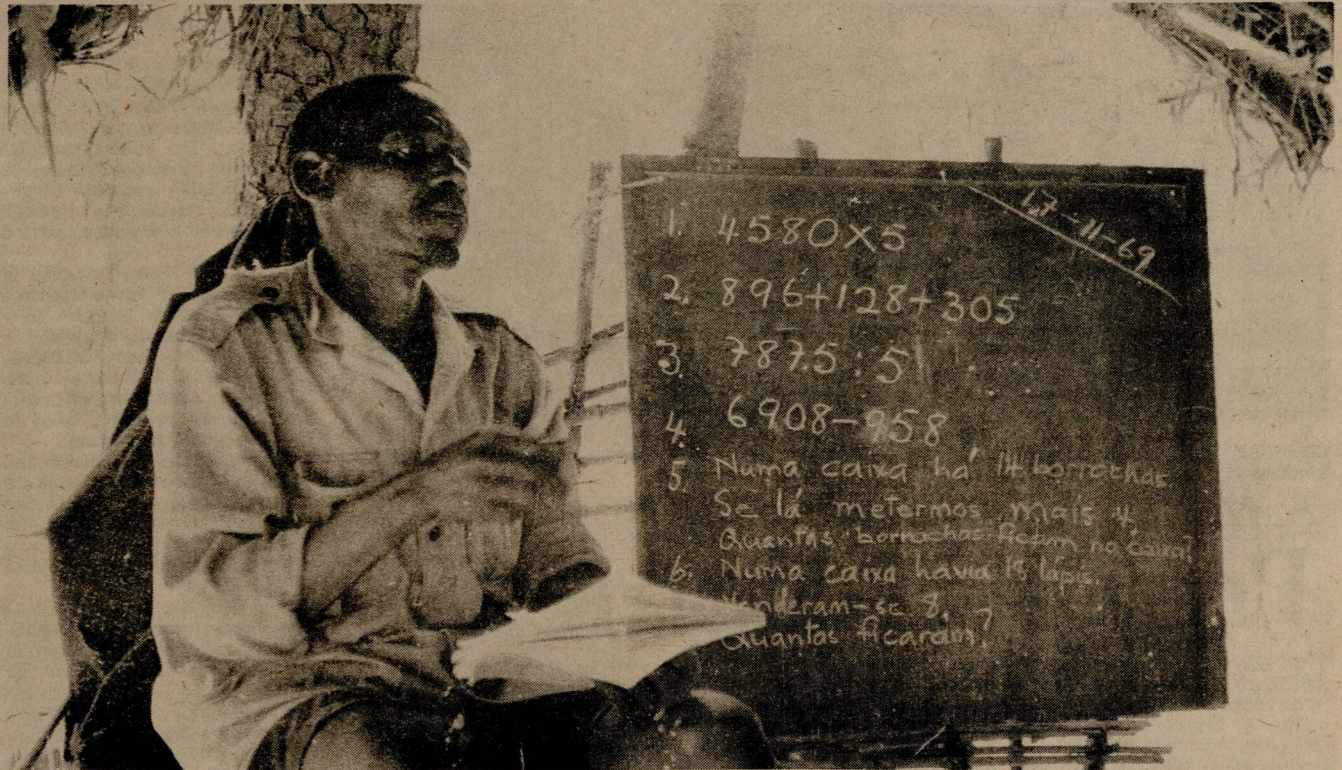 17-11-69
1. 4580X5
2. 896+128+305
3. 7875:5
4. 6908-958
5. Numa caixa há 14 borrachas.
Se lá metermos mais 4,
Quantas borrachas ficam na caixa?
6. Numa caixa havia 18 lápis.
Venderam-se 8.
Quantos ficaram?